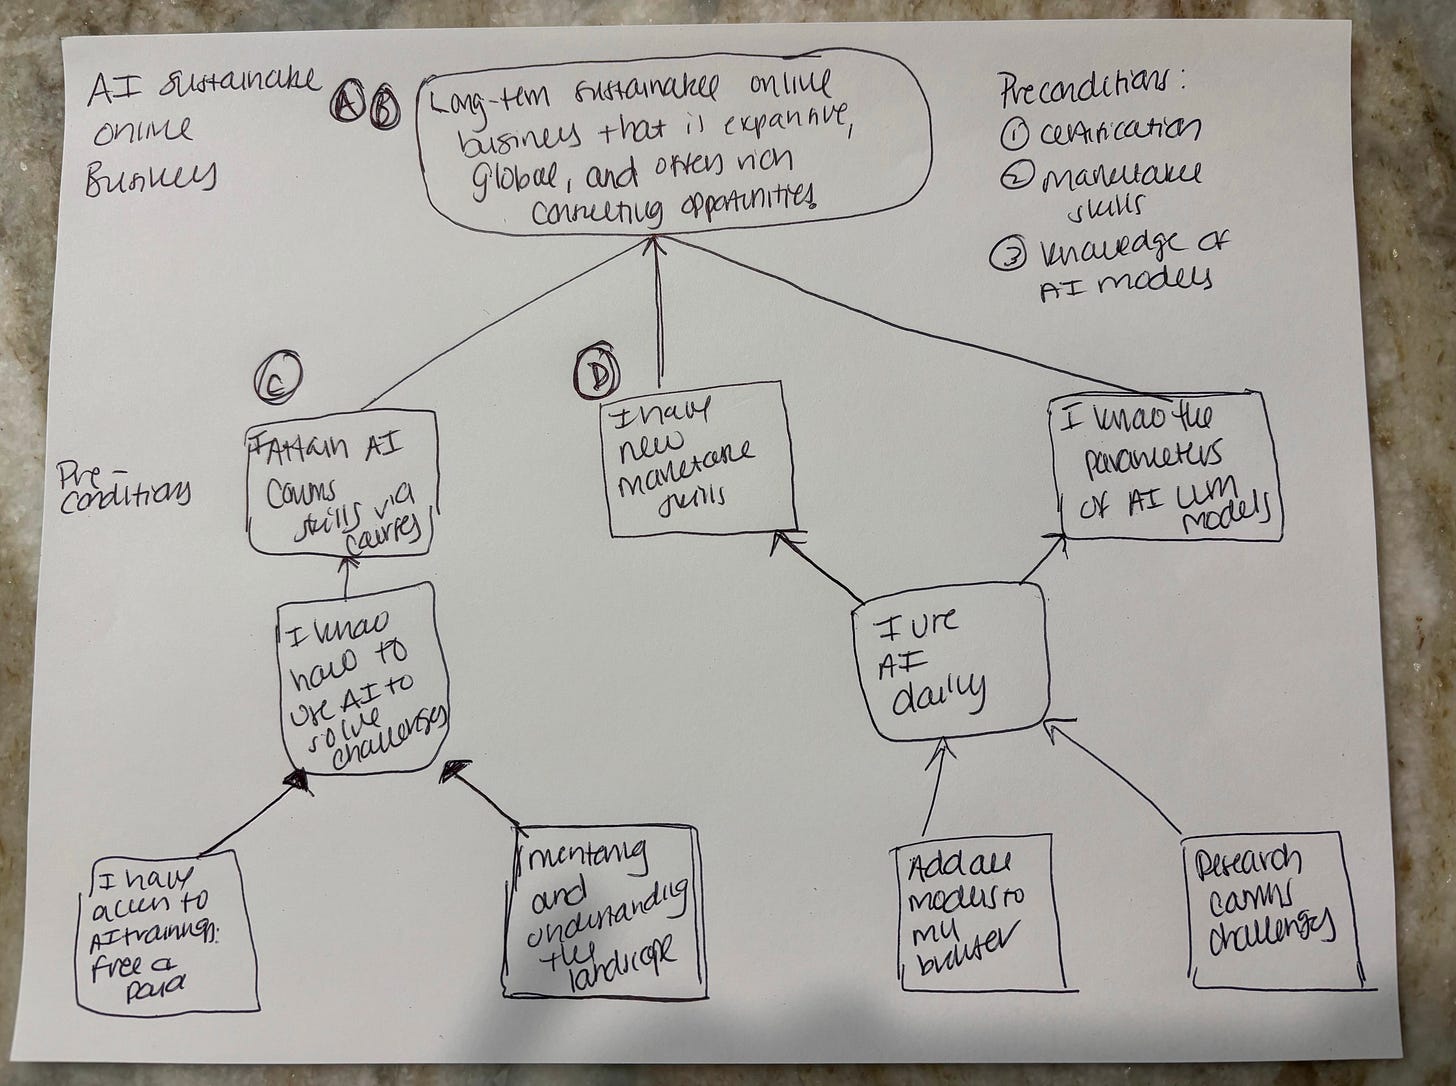 AI Sustainable
online
Business
A B
Long-term sustainable online
business that is expansive,
global, and offers rich
connecting opportunities
Preconditions:
1 certification
2 marketable
skills
3 knowledge of
AI models
C
D
Pre-
conditions
I Attain AI
Comms
skills via
courses
I have
new
marketable
skills
I know the
parameters
of AI LLM
models
I know
how to
use AI to
solve
challenges
I use
AI
daily
I have
access to
AI trainings:
free or
paid
mentoring
and
understanding
the
landscape
Add all
models to
my
browser
Research
comms
challenges